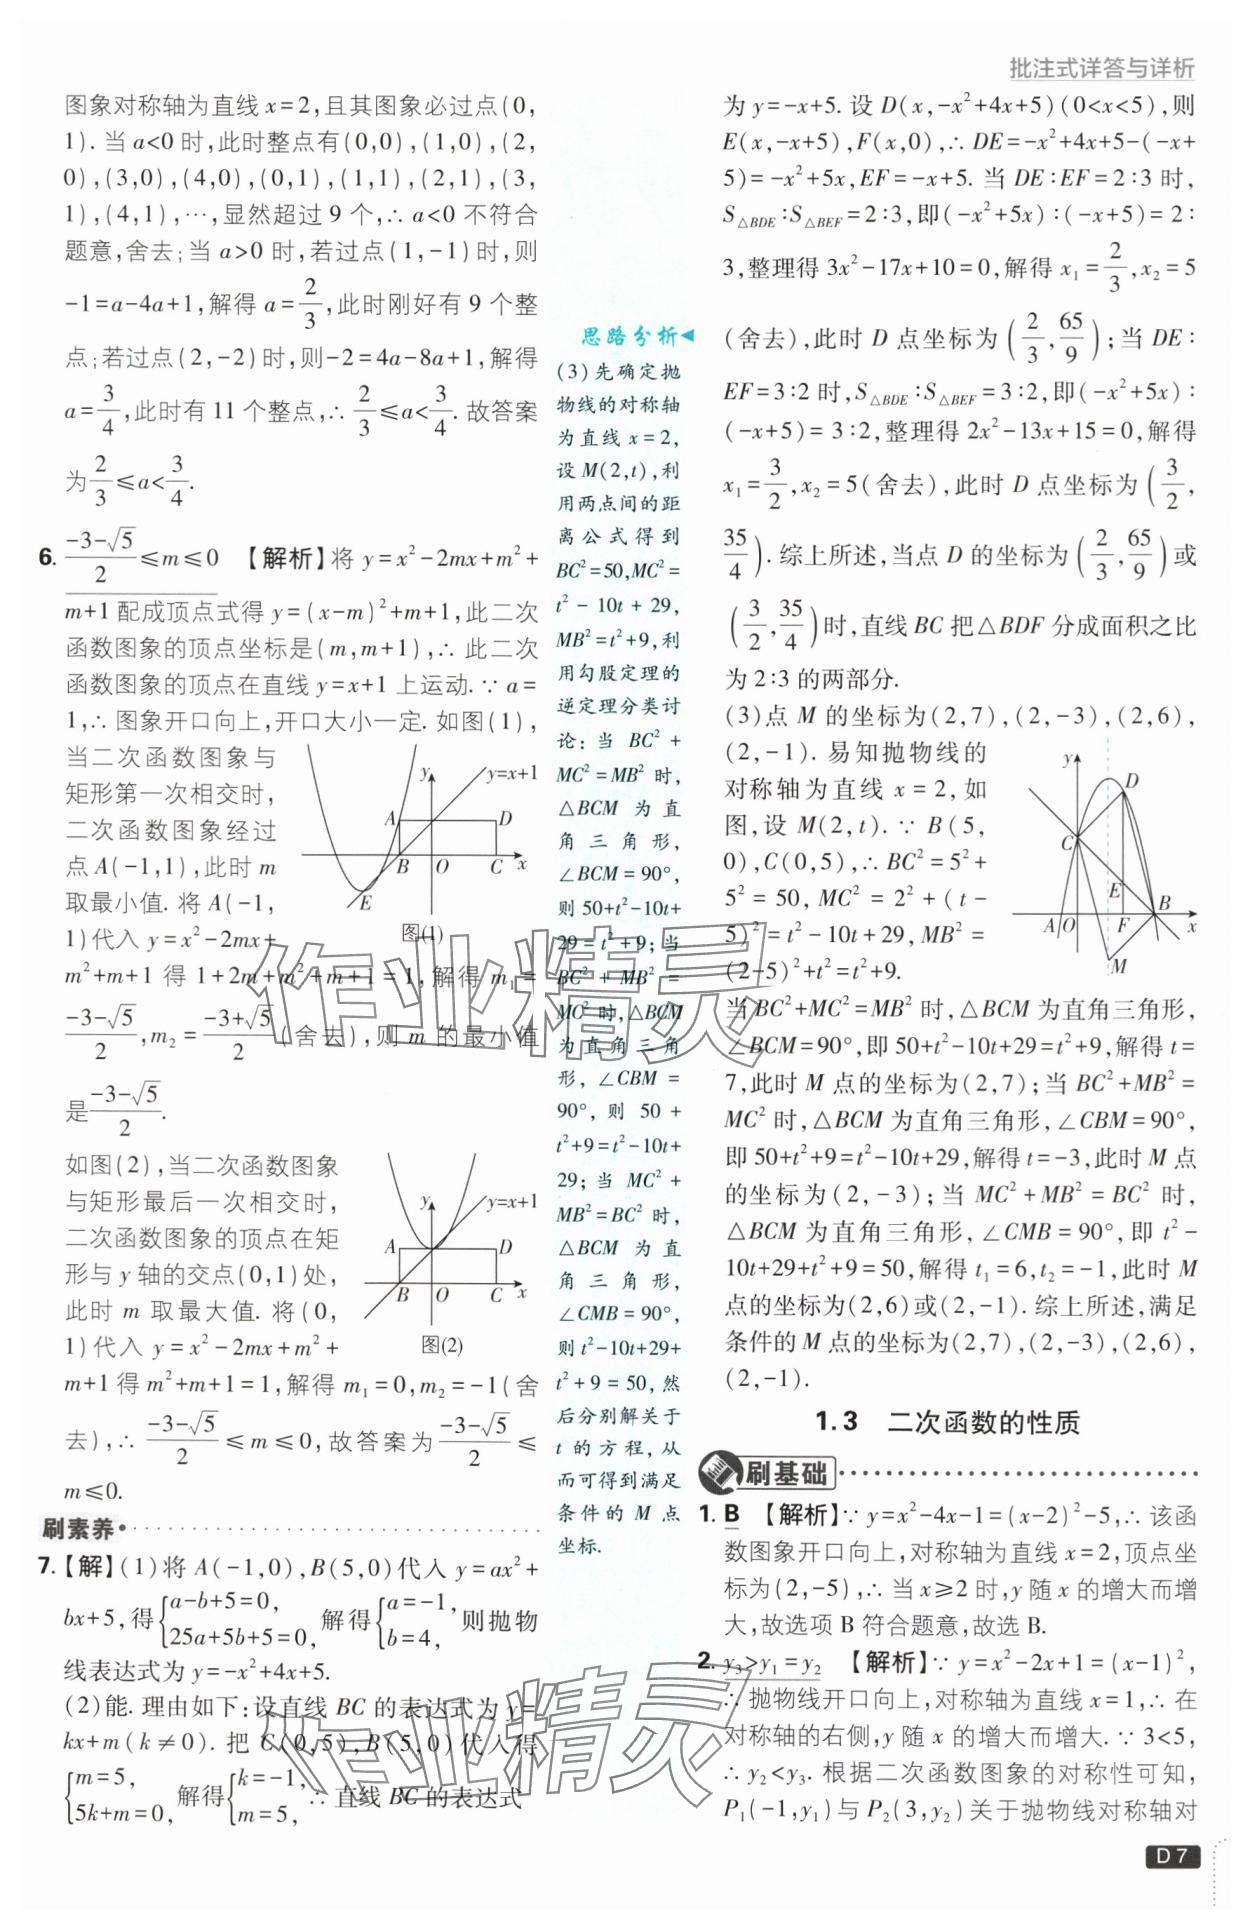 批注式详答与详析
图象对称轴为直线 x=2,且其图象必过点(0,
1). 当 a<0 时,此时整点有(0,0),(1,0),(2,
0),(3,0),(4,0),(0,1),(1,1),(2,1),(3,
1),(4,1),…,显然超过 9 个,∴ a<0 不符合
题意,舍去;当 a>0 时,若过点(1,-1)时,则
-1=a-4a+1,解得 a=2/3,此时刚好有 9 个整
点;若过点(2,-2)时,则-2=4a-8a+1,解得
a=3/4,此时有 11 个整点,∴ 2/3≤a<3/4. 故答案
为2/3≤a<3/4.
6. (-3-√5)/2≤m≤0 【解析】将 y=x²-2mx+m²+
m+1 配成顶点式得 y=(x-m)²+m+1,此二次
函数图象的顶点坐标是(m,m+1),∴ 此二次
函数图象的顶点在直线 y=x+1 上运动. ∵ a=
1,∴ 图象开口向上,开口大小一定. 如图(1),
当二次函数图象与
矩形第一次相交时,
二次函数图象经过
点 A(-1,1),此时 m
取最小值. 将 A(-1,
1)代入 y=x²-2mx+
y
y=x+1
A
D
B
O
C
x
E
图(1)
m²+m+1 得 1+2m+m²+m+1=1,解得 m₁=
(-3-√5)/2,m₂=(-3+√5)/2(舍去),则 m 的最小值
是(-3-√5)/2.
如图(2),当二次函数图象
与矩形最后一次相交时,
二次函数图象的顶点在矩
形与 y 轴的交点(0,1)处,
此时 m 取最大值. 将(0,
1)代入 y=x²-2mx+m²+
y
y=x+1
A
D
B
O
C
x
图(2)
m+1 得 m²+m+1=1,解得 m₁=0,m₂=-1(舍
去),∴ (-3-√5)/2≤m≤0,故答案为(-3-√5)/2≤
m≤0.
刷素养
7.【解】(1)将 A(-1,0),B(5,0)代入 y=ax²+
bx+5,得{a-b+5=0, 25a+5b+5=0, 解得{a=-1, b=4, 则抛物
线表达式为 y=-x²+4x+5.
(2)能. 理由如下:设直线 BC 的表达式为 y=
kx+m(k≠0). 把 C(0,5),B(5,0)代入得
{m=5, 5k+m=0, 解得{k=-1, m=5, ∴ 直线 BC 的表达式
思路分析
(3)先确定抛
物线的对称轴
为直线 x=2,
设 M(2,t),利
用两点间的距
离公式得到
BC²=50,MC²=
t²-10t+29,
MB²=t²+9,利
用勾股定理的
逆定理分类讨
论:当 BC²+
MC²=MB² 时,
△BCM 为直
角三角形,
∠BCM=90°,
则 50+t²-10t+
29=t²+9;当
BC²+MB²=
MC² 时,△BCM
为直角三角
形,∠CBM=
90°,则 50+
t²+9=t²-10t+
29;当 MC²+
MB²=BC² 时,
△BCM 为直
角三角形,
∠CMB=90°,
则 t²-10t+29+
t²+9=50,然
后分别解关于
t 的方程,从
而可得到满足
条件的 M 点
坐标.
为 y=-x+5. 设 D(x,-x²+4x+5)(0<x<5),则
E(x,-x+5),F(x,0),∴ DE=-x²+4x+5-(-x+
5)=-x²+5x,EF=-x+5. 当 DE∶EF=2∶3 时,
S△BDE∶S△BEF=2∶3,即(-x²+5x)∶(-x+5)=2∶
3,整理得 3x²-17x+10=0,解得 x₁=2/3,x₂=5
(舍去),此时 D 点坐标为(2/3,65/9);当 DE∶
EF=3∶2 时,S△BDE∶S△BEF=3∶2,即(-x²+5x)∶
(-x+5)=3∶2,整理得 2x²-13x+15=0,解得
x₁=3/2,x₂=5(舍去),此时 D 点坐标为(3/2,
35/4). 综上所述,当点 D 的坐标为(2/3,65/9)或
(3/2,35/4)时,直线 BC 把△BDF 分成面积之比
为 2∶3 的两部分.
(3)点 M 的坐标为(2,7),(2,-3),(2,6),
(2,-1). 易知抛物线的
对称轴为直线 x=2,如
图,设 M(2,t). ∵ B(5,
0),C(0,5),∴ BC²=5²+
5²=50,MC²=2²+(t-
5)²=t²-10t+29,MB²=
(2-5)²+t²=t²+9.
y
D
C
E
B
A
O
F
x
M
当 BC²+MC²=MB² 时,△BCM 为直角三角形,
∠BCM=90°,即 50+t²-10t+29=t²+9,解得 t=
7,此时 M 点的坐标为(2,7);当 BC²+MB²=
MC² 时,△BCM 为直角三角形,∠CBM=90°,
即 50+t²+9=t²-10t+29,解得 t=-3,此时 M 点
的坐标为(2,-3);当 MC²+MB²=BC² 时,
△BCM 为直角三角形,∠CMB=90°,即 t²-
10t+29+t²+9=50,解得 t₁=6,t₂=-1,此时 M
点的坐标为(2,6)或(2,-1). 综上所述,满足
条件的 M 点的坐标为(2,7),(2,-3),(2,6),
(2,-1).
1.3 二次函数的性质
刷基础
1. B 【解析】∵ y=x²-4x-1=(x-2)²-5,∴ 该函
数图象开口向上,对称轴为直线 x=2,顶点坐
标为(2,-5),∴ 当 x≥2 时,y 随 x 的增大而增
大,故选项 B 符合题意,故选 B.
2. y₃>y₁=y₂ 【解析】∵ y=x²-2x+1=(x-1)²,
∴ 抛物线开口向上,对称轴为直线 x=1,∴ 在
对称轴的右侧,y 随 x 的增大而增大. ∵ 3<5,
∴ y₂<y₃. 根据二次函数图象的对称性可知,
P₁(-1,y₁)与 P₂(3,y₂)关于抛物线对称轴对
D7
作业精灵
作业精灵